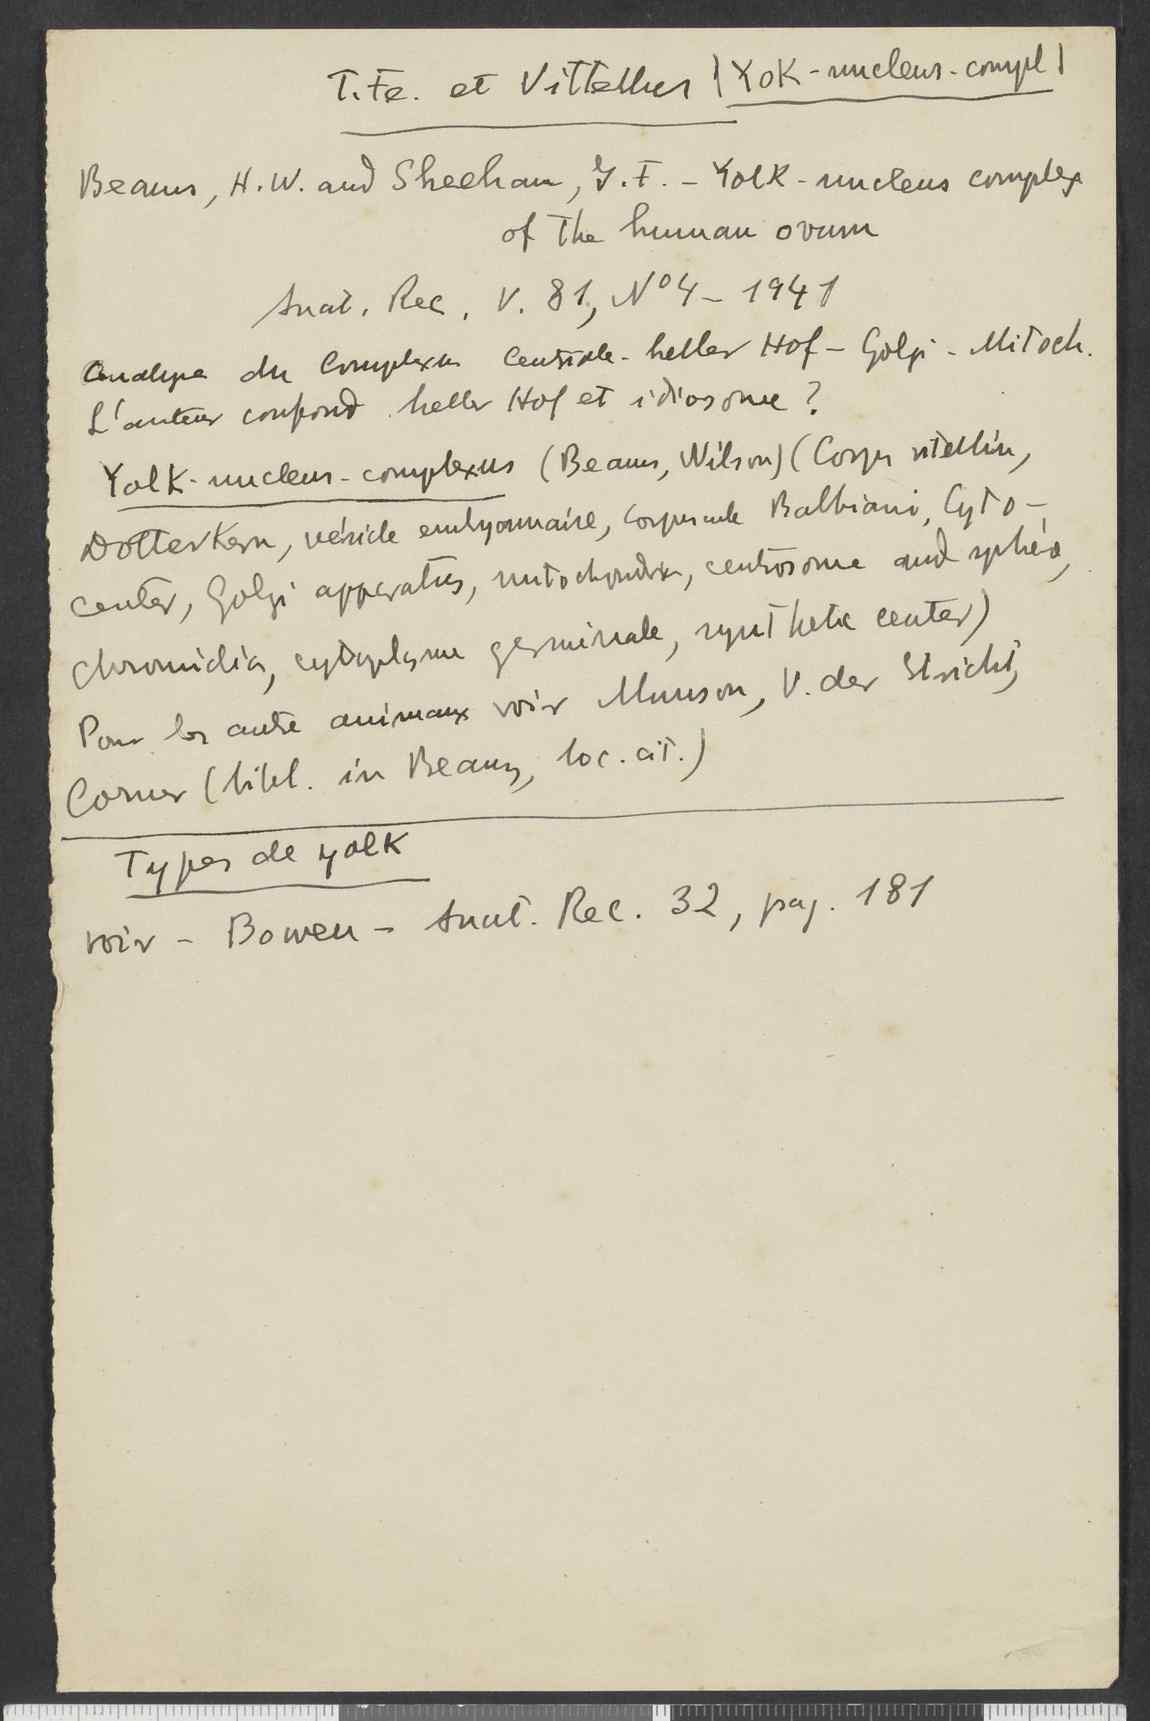 T. Fe. et Vittellus (Yok-nucleus-compl)
Beams, H.W. and Sheehan, J.F. - Yolk-nucleus complex
of the human ovum
Anat. Rec. V. 81, Nº 4 - 1941
Analyse du Complexus Centriole - heller Hof - Golgi - Mitoch.
L'auteur confond heller Hof et idiosome ?
Yolk-nucleus-complexus (Beams, Wilson) (Corps vitellin,
Dotterkern, vésicle embryonnaire, corpuscule Balbiani, Cyto-
center, Golgi apparatus, mitochondria, centrosome and sphère,
chromidia, cytoplasme germinale, synthetic center)
Pour les autre animaux voir Munson, V. der Stricht,
Corner (bibl. in Beams, loc. cit.)
Types de yolk
voir - Bowen - Anat. Rec. 32, pag. 181